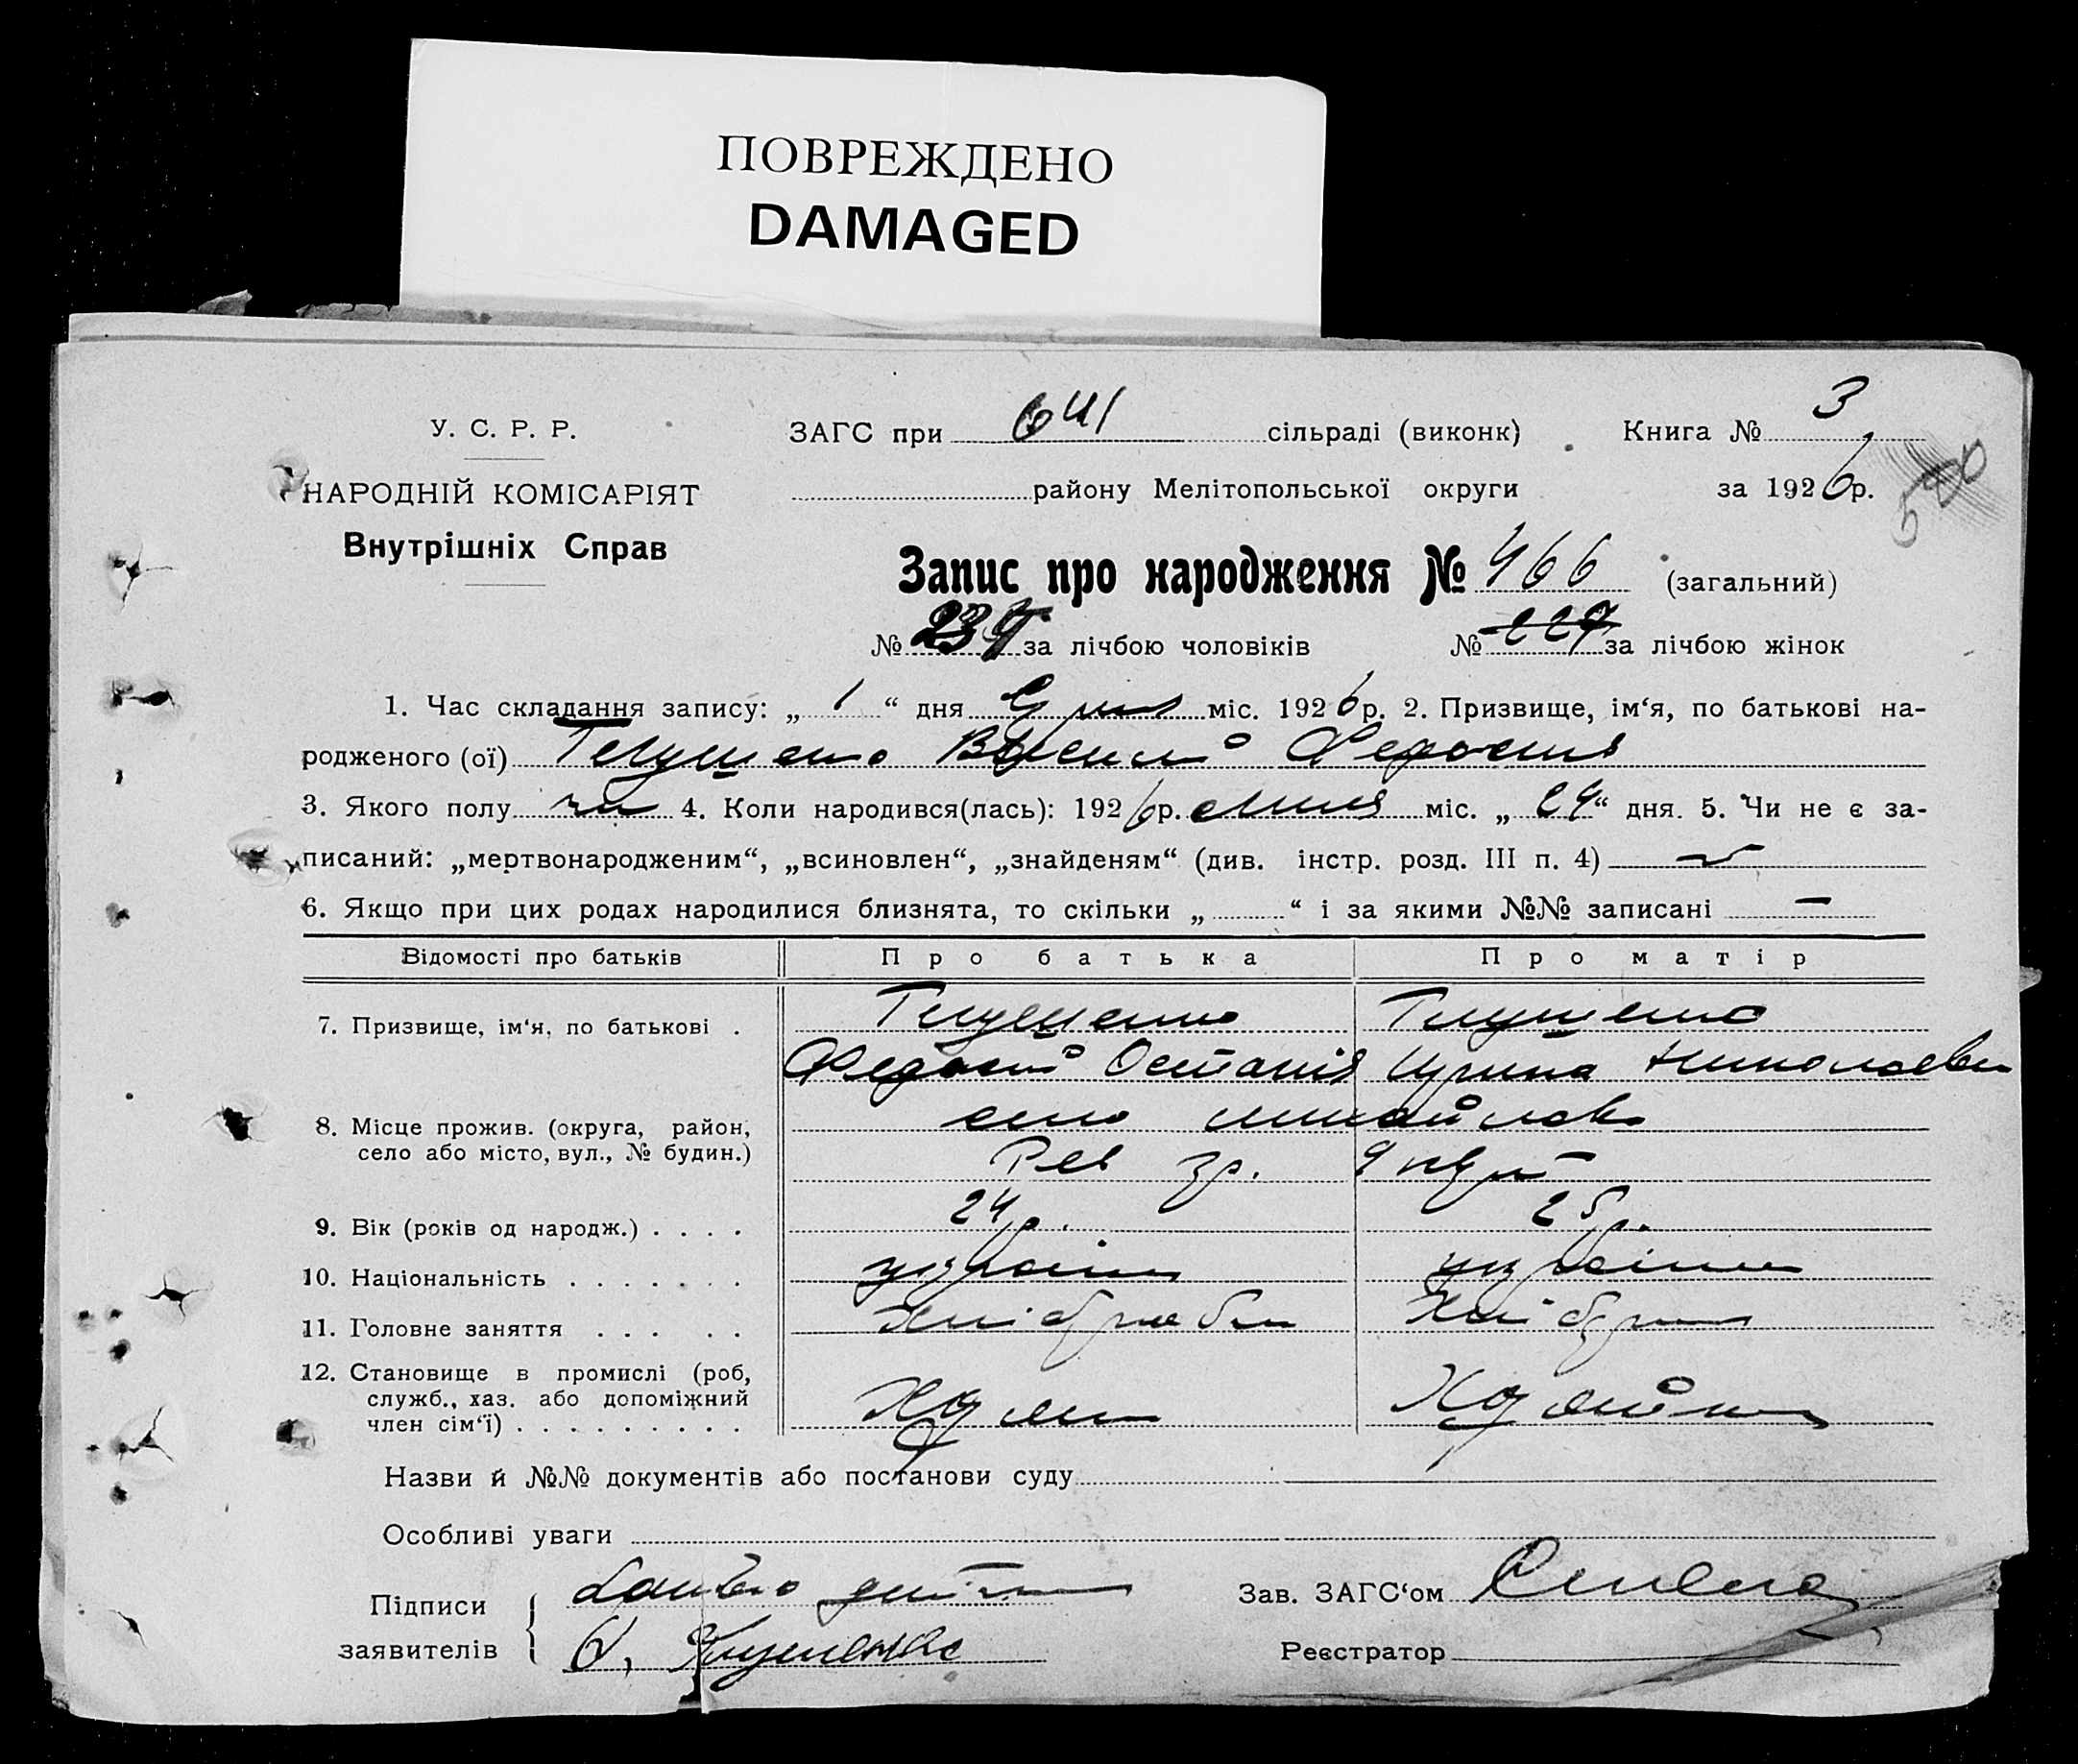 ПОВРЕЖДЕНО
DAMAGED
У. С. Р. Р.
ЗАГС при сільраді (виконк)
Книга № 3
500
НАРОДНІЙ КОМІСАРІЯТ
району Мелітопольської округи
за 1926 р.
Внутрішніх Справ
Запис про народження № 466 (загальний)
№ 239 за лічбою чоловіків № 227 за лічбою жінок
1. Час складання запису: „ 1 “ дня міс. 1926 р. 2. Призвище, ім‘я, по батькові на-
родженого (ої) Глущенко Василий Федосиев
3. Якого полу 4. Коли народився(лась): 1926 р. міс. „ 24 “ дня. 5. Чи не є за-
писаний: „мертвонародженим“, „всиновлен“, „знайденям“ (див. інстр. розд. III п. 4)
6. Якщо при цих родах народилися близнята, то скільки „ “ і за якими №№ записані —
Відомості про батьків Про батька Про матір
7. Призвище, ім‘я, по батькові . Глущенко Глущенко
Федосий Остапів Ирина Николаевн
8. Місце прожив. (округа, район, село
село або місто, вул., № будин.)
9. Вік (років од народж.) . . . . 24 р. 25 р.
10. Національність . . . . . . . україн україн
11. Головне заняття . . . . .
12. Становище в промислі (роб,
служб., хаз. або допоміжний
член сім‘ї) . . . . . . . . .
Назви й №№ документів або постанови суду
Особливі уваги
Підписи
Зав. ЗАГС‘ом
заявителів
Реєстратор